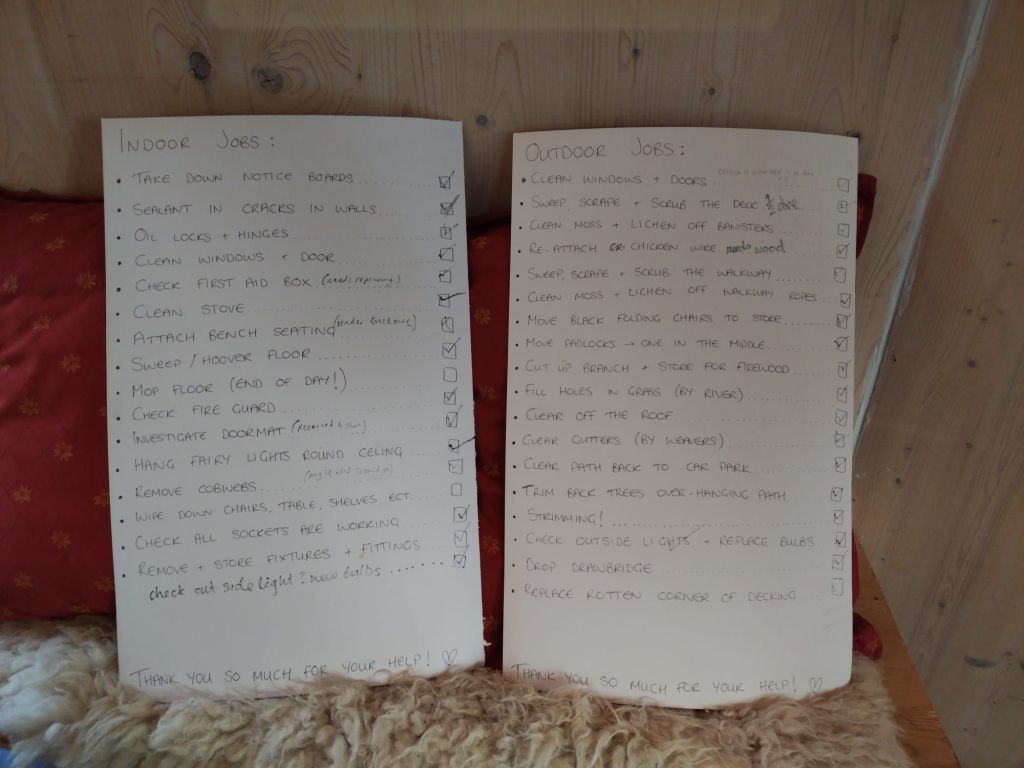 INDOOR JOBS:
• TAKE DOWN NOTICE BOARDS
• SEALANT IN CRACKS IN WALLS
• OIL LOCKS + HINGES
• CLEAN WINDOWS + DOOR
• CHECK FIRST AID BOX (needs replacing)
• CLEAN STOVE
• ATTACH BENCH SEATING (under
• SWEEP / HOOVER FLOOR
• MOP FLOOR (END OF DAY!)
• CHECK FIRE GUARD
• INVESTIGATE DOORMAT
• HANG FAIRY LIGHTS ROUND CELING
• REMOVE COBWEBS
• WIPE DOWN CHAIRS, TABLE, SHELVES ECT.
• CHECK ALL SOCKETS ARE WORKING
• REMOVE + STORE FIXTURES + FITTINGS
check out side light? new bulbs
THANK YOU SO MUCH FOR YOUR HELP! ♡
OUTDOOR JOBS:
• CLEAN WINDOWS + DOORS
• SWEEP, SCRAPE + SCRUB THE DECK
• CLEAN MOSS + LICHEN OFF BANISTERS
• RE-ATTACH CHICKEN WIRE needs wood
• SWEEP, SCRAPE + SCRUB THE WALKWAY
• CLEAN MOSS + LICHEN OFF WALKWAY ROPES
• MOVE BLACK FOLDING CHAIRS TO STORE
• MOVE PADLOCKS → ONE IN THE MIDDLE
• CUT UP BRANCH + STORE FOR FIREWOOD
• FILL HOLES IN GRASS (BY RIVER)
• CLEAR OFF THE ROOF
• CLEAR GUTTERS (BY WEAVERS)
• CLEAR PATH BACK TO CAR PARK
• TRIM BACK TREES OVER-HANGING PATH
• STRIMMING!
• CHECK OUTSIDE LIGHTS + REPLACE BULBS
• DROP DRAWBRIDGE
• REPLACE ROTTEN CORNER OF DECKING
THANK YOU SO MUCH FOR YOUR HELP! ♡